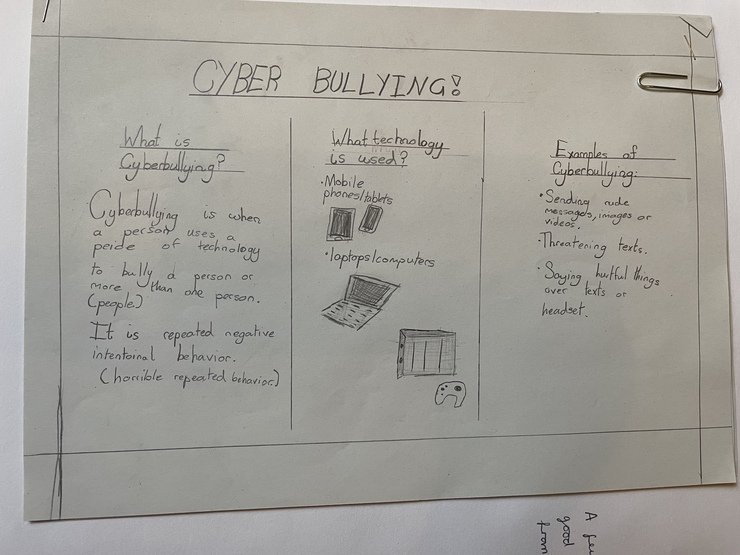 CYBER BULLYING!
What is
Cyberbullying?
Cyberbullying is when
a person uses a
peide of technology
to bully a person or
more than one person.
(people.)
It is repeated negative
intentoinal behavior.
(horrible repeated behavior.)
What technology
is used?
·Mobile
phones/tablets
·laptops/computers
Examples of
Cyberbullying:
·Sending rude
messages, images or
videos.
·Threatening texts.
·Saying hurtful things
over texts or
headset.
A few
good
from